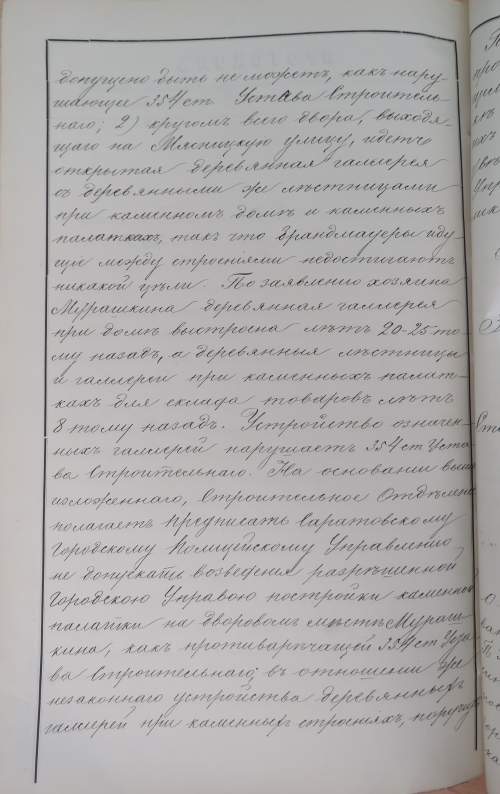 допущено быть не можетъ, какъ нару-
шающее 354 ст Устава Строитель-
наго; 2) кругомъ всего двора, выходя-
щаго на Мясницкую улицу, идетъ
открытая деревянная галлерея
съ деревянными же лѣстницами
при каменномъ домѣ и каменныхъ
палаткахъ, такъ что брандмауеры иду-
щіе между строеніями недостигаютъ
никакой цѣли. По заявленію хозяина
Мурашкина деревянная галлерея
при домѣ выстроена лѣтъ 20-25 то-
му назадъ, а деревянныя лѣстницы
и галлереи при каменныхъ палат-
кахъ для склада товаровъ лѣтъ
8 тому назадъ. Устройство означен-
ныхъ галлерей нарушаетъ 354 ст Уста-
ва Строительнаго. На основаніи выше
изложеннаго, Строительное Отдѣленіе
полагаетъ предписать Саратовскому
Городскому Полицейскому Управленію
не допускать возведенія разрѣшенной
Городскою Управою постройки каменной
палатки на дворовомъ мѣстѣ Мураш-
кина, какъ противорѣчащей 354 ст Уста-
ва Строительнаго; въ отношеніи же
незаконнаго устройства деревянныхъ
галлерей при каменныхъ строеніяхъ, поручить